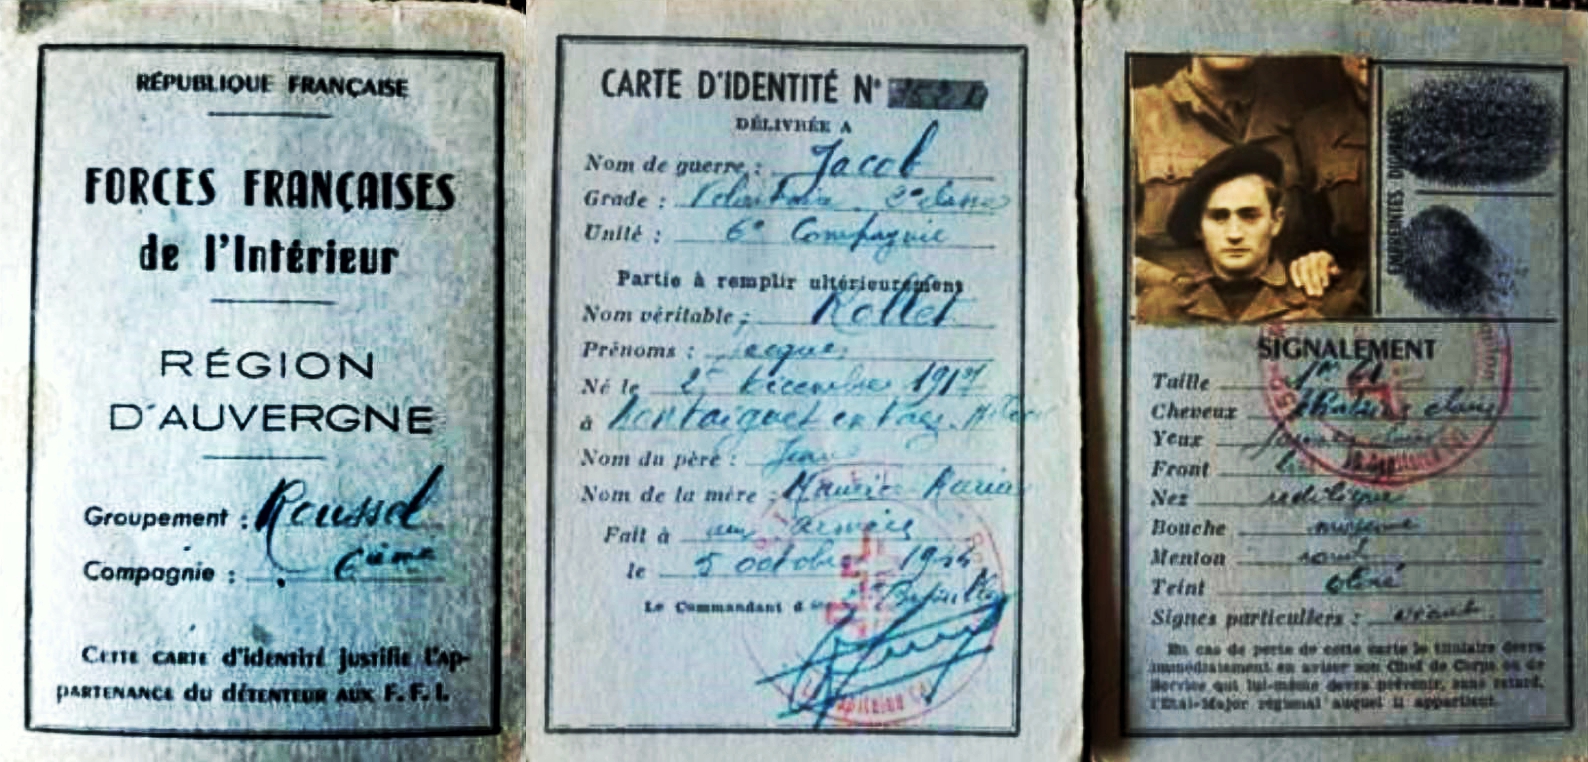 RÉPUBLIQUE FRANÇAISE
FORCES FRANÇAISES
de l'Intérieur
RÉGION
D'AUVERGNE
Groupement : Roussel
Compagnie : 6ème
CETTE CARTE d'identité justifie l'Ap-
partenance du détenteur aux F.F.I.
CARTE D'IDENTITÉ N°
DÉLIVRÉE A
Nom de guerre : Jacob
Grade : Volontaire 2e classe
Unité : 6e Compagnie
Partie à remplir ultérieurement
Nom véritable : Rollet
Prénoms : Jacques
Né le 25 décembre 191
à Montaiguet en
Nom du père : Jean
Nom de la mère :
Fait à aux armées
le 5 octobre 1944
Le Commandant d
EMPREINTES DIGITALES
SIGNALEMENT
Taille 1m
Cheveux clairs
Yeux
Front
Nez rectiligne
Bouche moyenne
Menton rond
Teint
Signes particuliers : néant
En cas de perte de cette carte le titulaire devra
immédiatement en aviser son Chef de Corps ou de
Service qui lui-même devra prévenir, sans retard,
l'Etat-Major régional auquel il appartient.